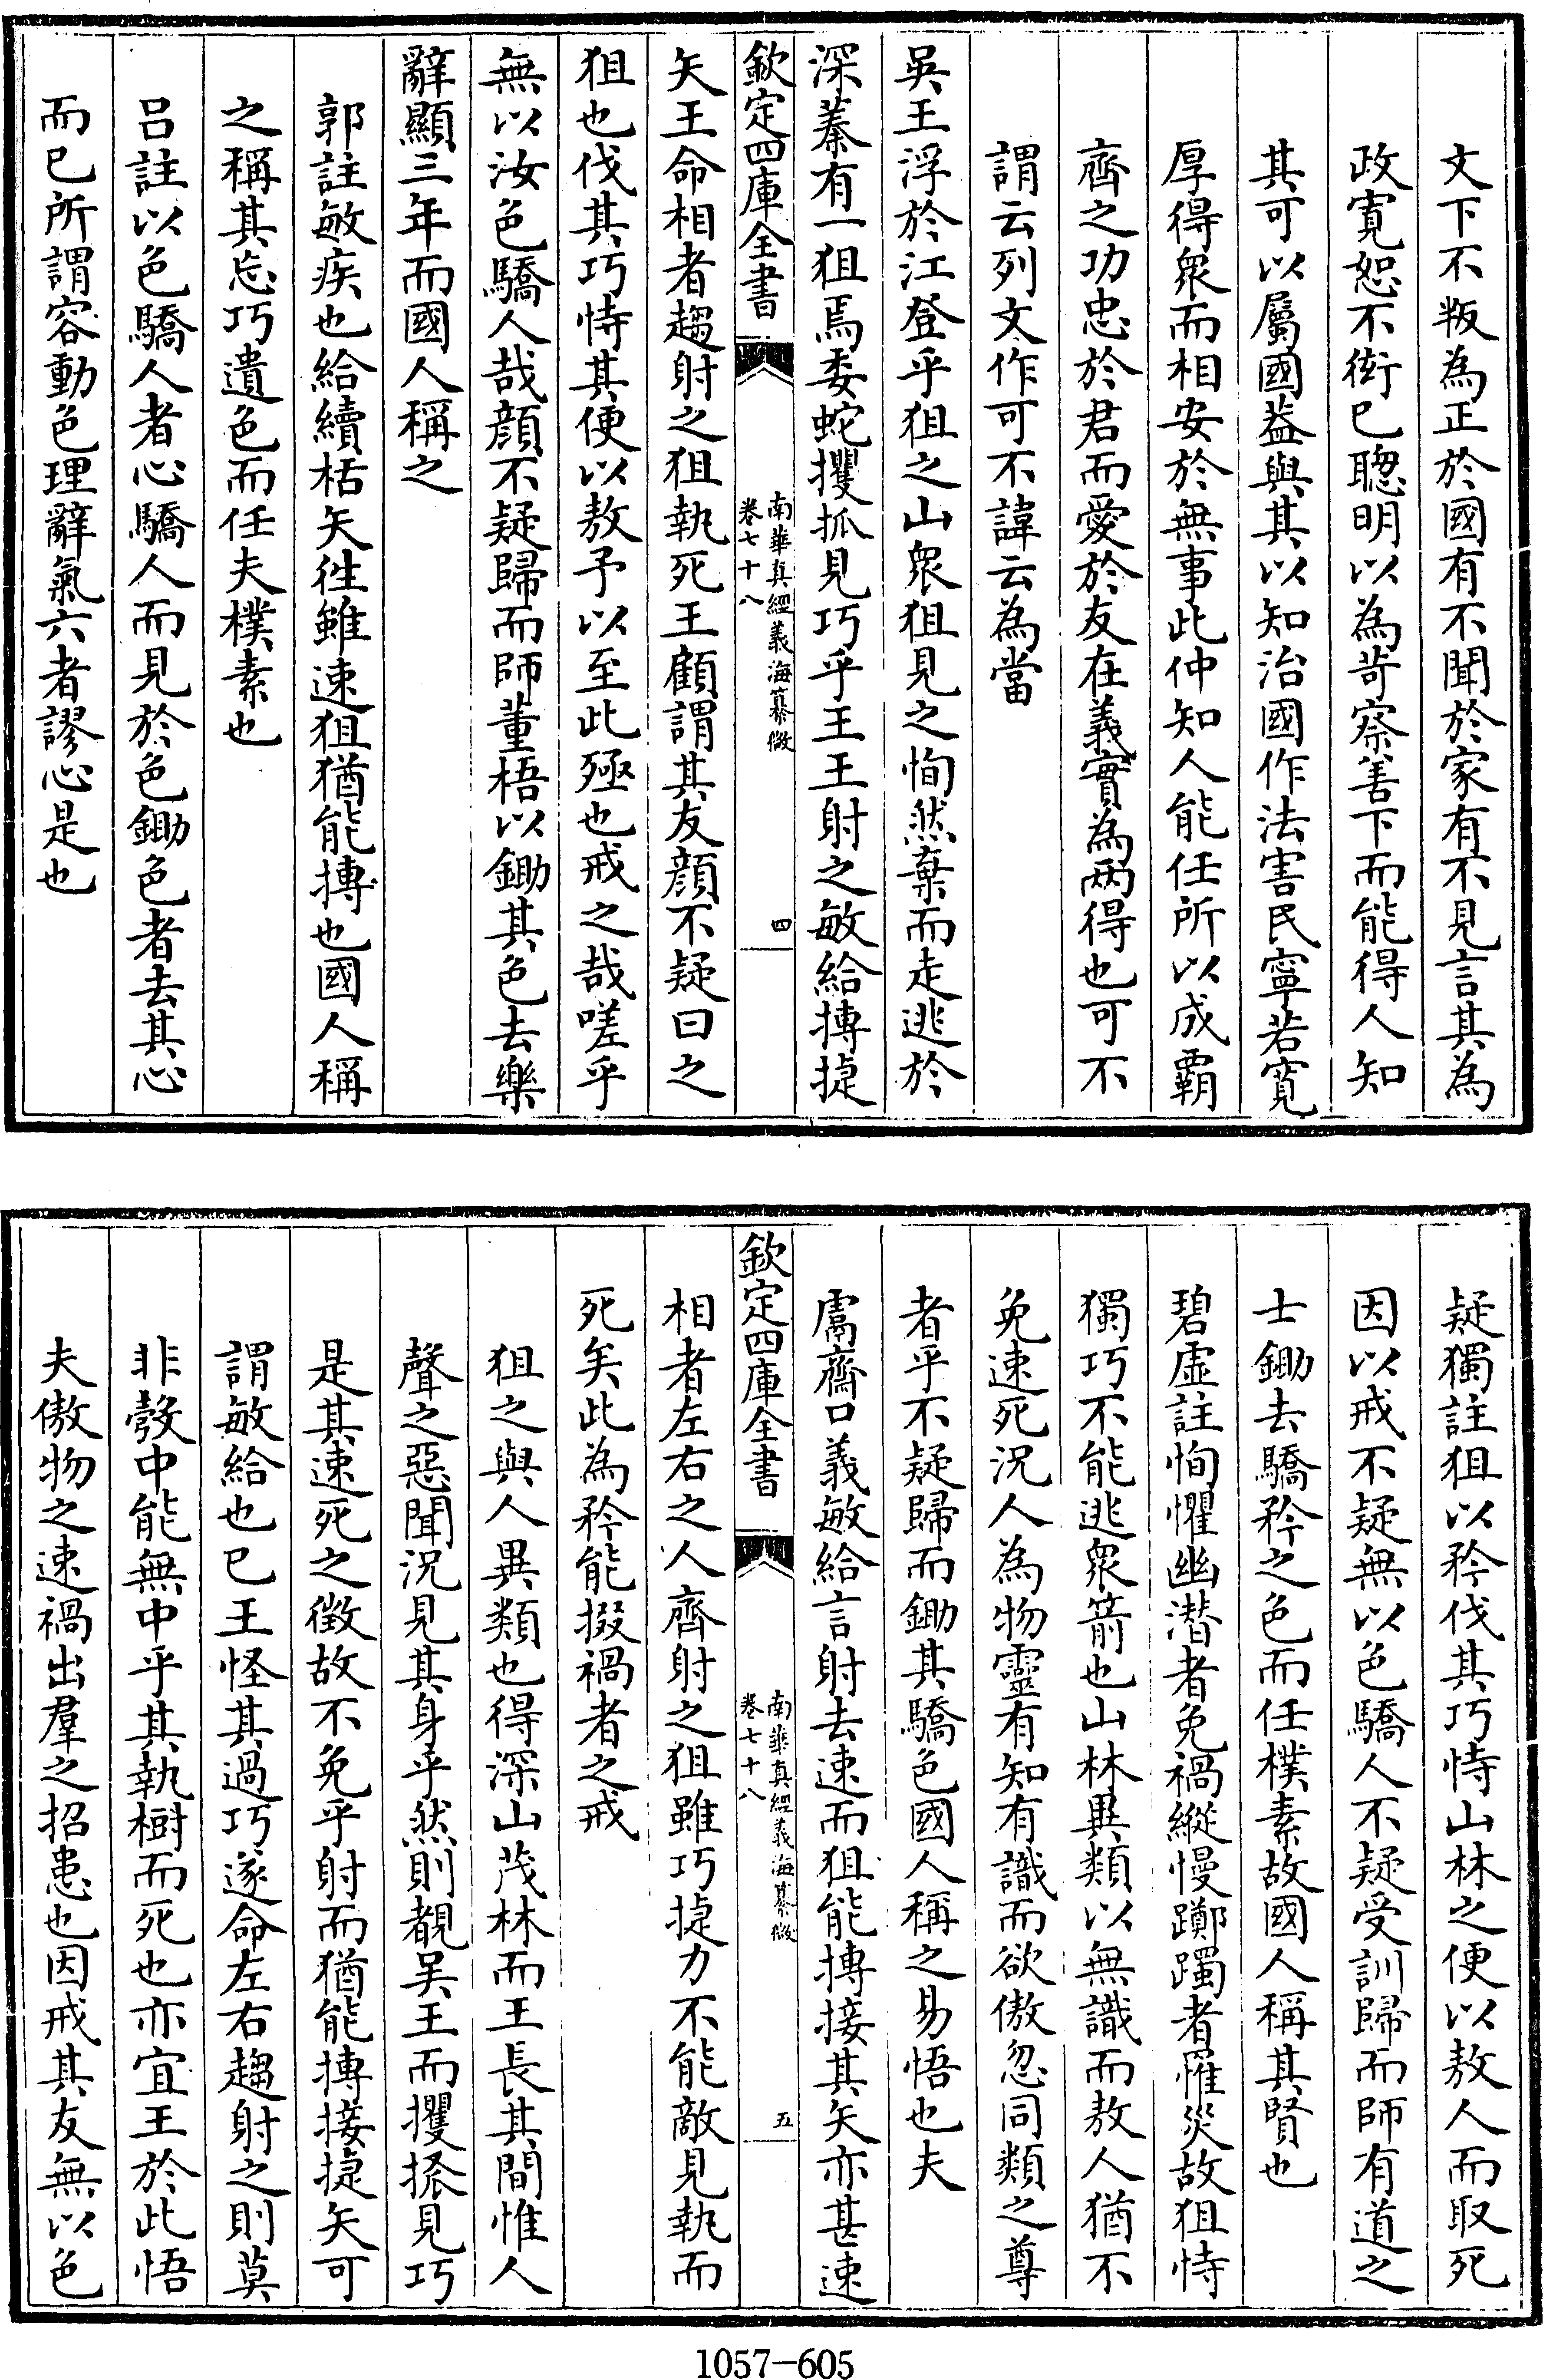 文下不叛為正於國有不聞於家有不見言其為
政寛恕不衒已聰明以為苛察善下而能得人知
其可以屬國葢與其以知治國作法害民寧若寛
厚得衆而相安於無事此仲知人能任所以成霸
齊之功忠於君而愛於友在義實為兩得也可不
謂云列文作可不諱云為當
吳王浮於江登乎狙之山衆狙見之恂然棄而走逃於
深蓁有一狙焉委蛇攫抓見巧乎王王射之敏給搏捷
欽定四庫全書
南華真經義海纂微
卷七十八
四
矢王命相者趨射之狙執死王顧謂其友顔不疑曰之
狙也伐其巧恃其便以敖予以至此殛也戒之哉嗟乎
無以汝色驕人哉顔不疑歸而師董梧以鋤其色去樂
辭顯三年而國人稱之
郭註敏疾也給續栝矢徃雖速狙猶能搏也國人稱
之稱其忘巧遺色而任夫樸素也
呂註以色驕人者心驕人而見於色鋤色者去其心
而已所謂容動色理辭氣六者謬心是也
疑獨註狙以矜伐其巧恃山林之便以敖人而取死
因以戒不疑無以色驕人不疑受訓歸而師有道之
士鋤去驕矜之色而任樸素故國人稱其賢也
碧虛註恂懼幽潛者免禍縱慢躑躅者罹災故狙恃
獨巧不能逃衆箭也山林異類以無識而敖人猶不
免速死況人為物靈有知有識而欲傲忽同類之尊
者乎不疑歸而鋤其驕色國人稱之易悟也夫
鬳齋口義敏給言射去速而狙能搏接其矢亦甚速
欽定四庫全書
南華真經義海纂微
卷七十八
五
相者左右之人齊射之狙雖巧捷力不能敵見執而
死矣此為矜能掇禍者之戒
狙之與人異類也得深山茂林而王長其間惟人
聲之惡聞況見其身乎然則覩吴王而攫搔見巧
是其速死之徴故不免乎射而猶能搏接捷矢可
謂敏給也已王怪其過巧遂命左右趨射之則莫
非彀中能無中乎其執樹而死也亦宜王於此悟
夫傲物之速禍出羣之招患也因戒其友無以色
1057-605